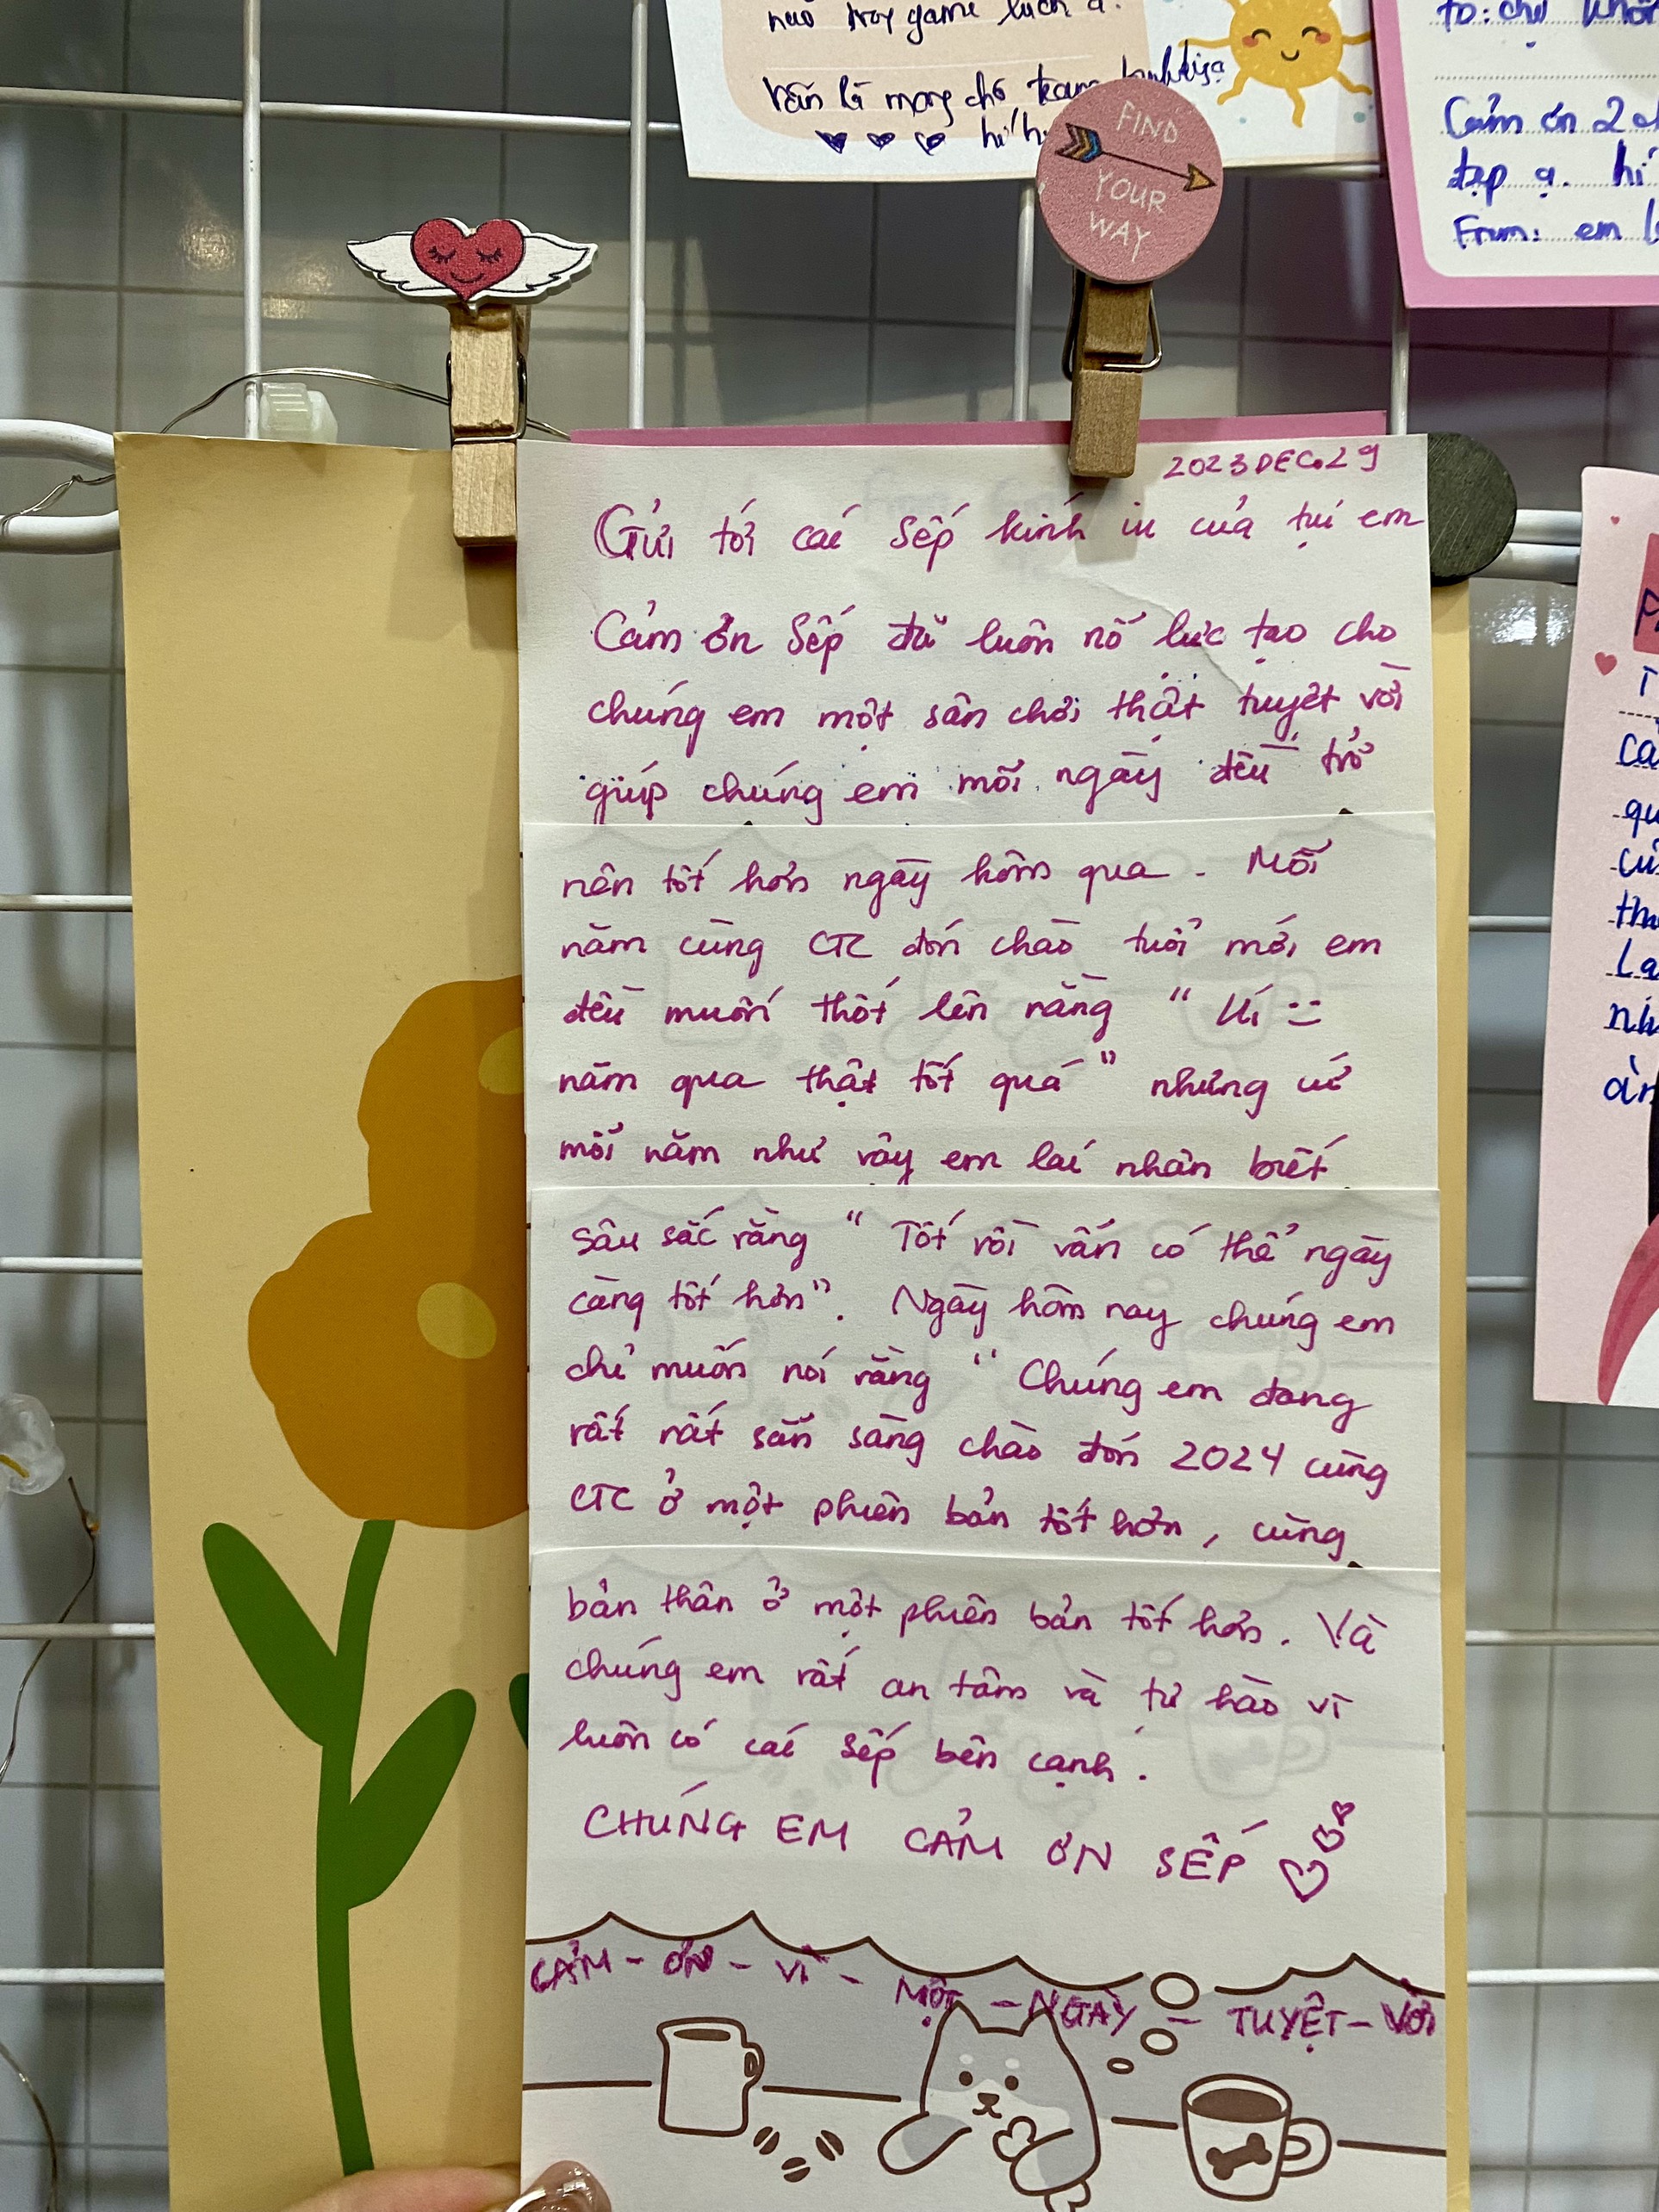 này game luôn ạ.
vẫn là mong chờ team
hí hí
FIND
YOUR
WAY
to: chị
Cảm ơn 2
đẹp ạ. hí
From: em
2023 DEC.29
Gửi tới các Sếp kính iu của tụi em
Cảm ơn Sếp đã luôn nổ lực tạo cho
chúng em một sân chơi thật tuyệt vời
giúp chúng em mỗi ngày đều trở
nên tốt hơn ngày hôm qua. Mỗi
năm cùng CTC đón chào tuổi mới em
đều muốn thốt lên rằng "Uí =
năm qua thật tốt quá" nhưng cứ
mỗi năm như vậy em lại nhận biết
sâu sắc rằng "Tốt rồi vẫn có thể ngày
càng tốt hơn". Ngày hôm nay chúng em
chỉ muốn nói rằng "Chúng em đang
rất rất sẵn sàng chào đón 2024 cùng
CTC ở một phiên bản tốt hơn, cùng
bản thân ở một phiên bản tốt hơn. Và
chúng em rất an tâm và tự hào vì
luôn có các sếp bên cạnh.
CHÚNG EM CẢM ƠN SẾP
CẢM - ƠN - VÌ - MỘT - NGÀY - TUYỆT - VỜI